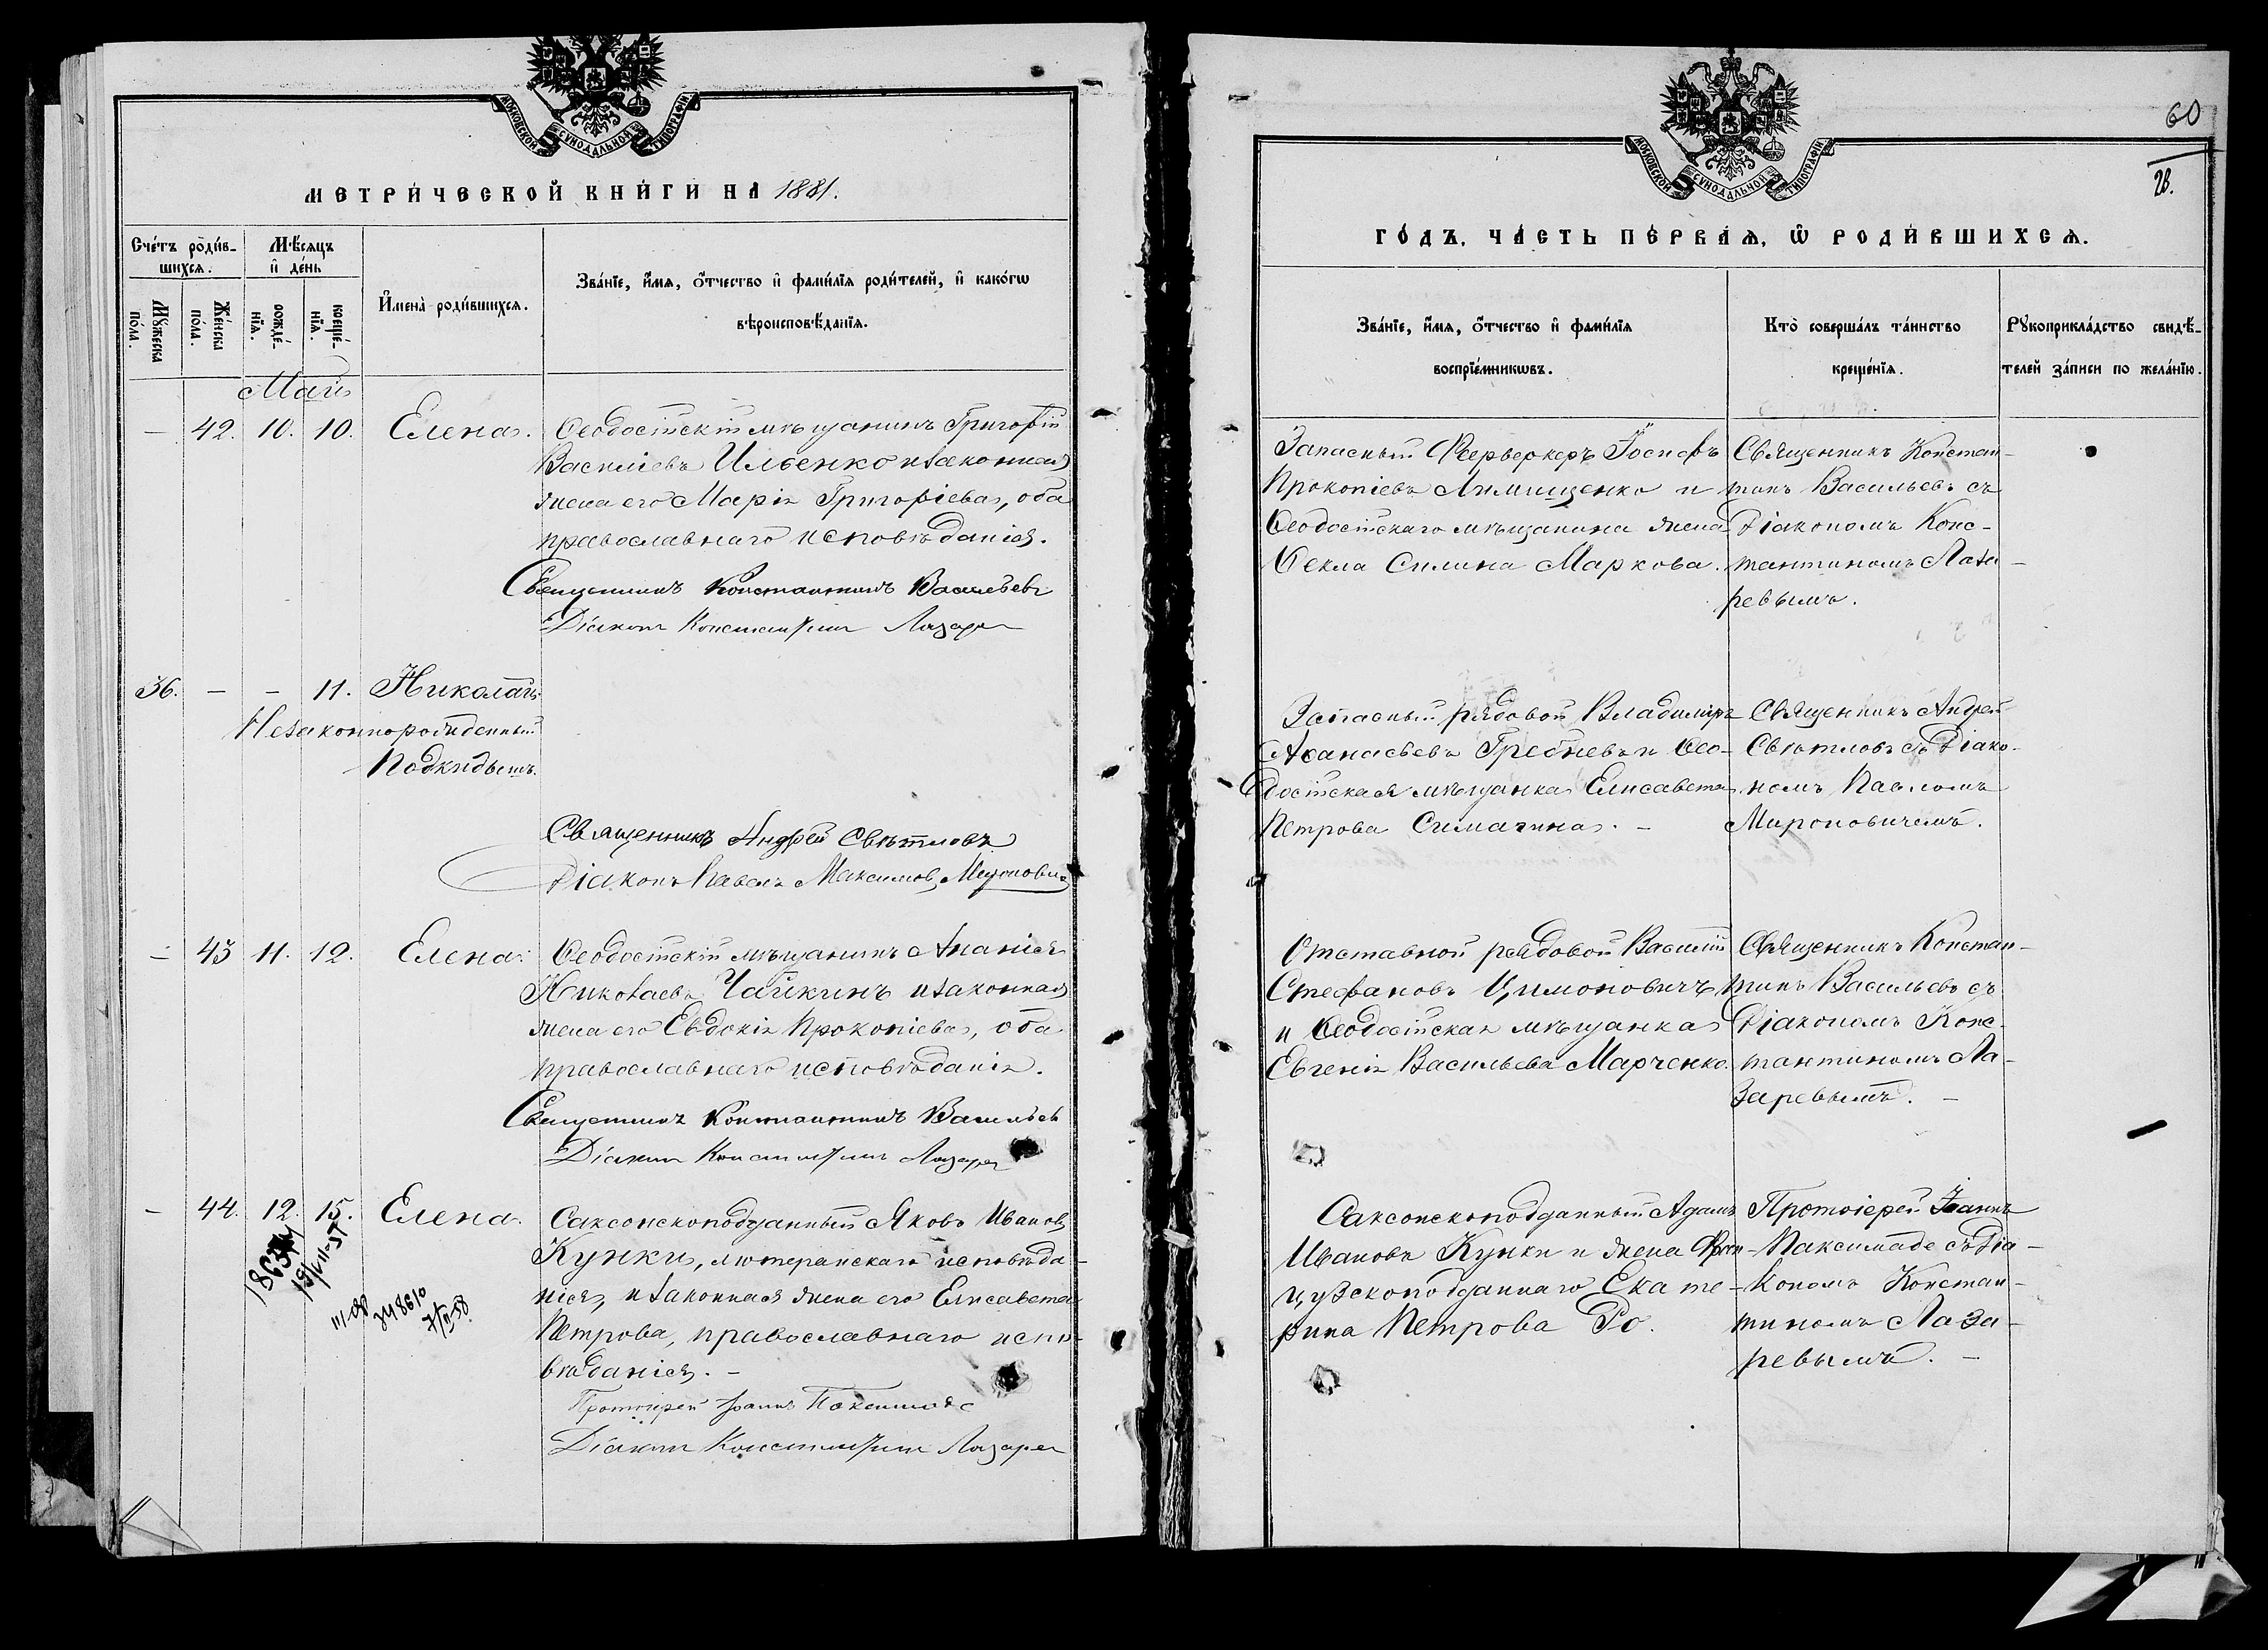 МОСКОВСКОЙ СѴНОДАЛЬНОЙ ТИПОГРАФІИ
МЕТРИ́ЧЕСКОЙ КНИ́ГИ НА 1881.
Сче́тъ роди́в-
шихся.
Мѣ́сяцъ
и҆ де́нь
И҆мена̀ роди́вшихся.
Зва́нїе, и҆́мя, ѻ҆́тчество и҆ фами́лїя роди́телей, и҆ како́гѡ
вѣроисповѣ́данїя.
Мꙋ́жеска
по́ла.
Же́нска
по́ла.
рожде́-
нїя.
креще́-
нїя.
Май
— 42. 10. 10. Елена. Ѳеодосійскій мѣщанинъ Григорій
Василіевъ Ильенко и законная
жена его Марія Григоріева, оба
православнаго исповѣданія.
Священникъ Константинъ Васильевъ
Діаконъ Константинъ Лазарев
36. — — 11. Николай
Незаконнорожденный
Подкидышъ.
Священникъ Андрей Свѣтловъ
Діаконъ Павелъ Максимовъ Мироновичъ
— 43 11. 12. Елена. Ѳеодосійскій мѣщанинъ Ананія
Николаевъ Чайкинъ и законная
жена его Евдокія Прокопіева, оба
православнаго исповѣданія.
Священникъ Константинъ Васильевъ
Діаконъ Константинъ Лазарев
— 44. 12. 15. Елена. Саксонскоподданный Яковъ Ивановъ
Кунки, лютеранскаго исповѣда-
нія, и законная жена его Елисавета
Петрова, православнаго испо-
вѣданія. —
Протоіерей Іоаннъ Паксимаде
Діаконъ Константинъ Лазарев
60
28.
МОСКОВСКОЙ СѴНОДАЛЬНОЙ ТИПОГРАФІИ
ГО́ДЪ, ЧА́СТЬ ПЕ́РВАЯ, Ѡ҆ РОДИ́ВШИХСЯ.
Зва́нїе, и҆́мя, ѻ҆́тчество и҆ фами́лїя
воспрїе́мникѡвъ.
Кто̀ соверша́лъ та́инство
креще́нїя.
Рꙋкоприкла́дство свидѣ́-
телей за́писи по жела́нїю.
Запасный Феерверкеръ Іосифъ
Прокопіевъ Лимищенко и
Ѳеодосійскаго мѣщанина жена
Ѳекла Силина Маркова.
Священникъ Констан-
тинъ Васильевъ съ
Діакономъ Конс-
тантиномъ Лаза-
ревымъ.
Запасный рядовой Владиміръ
Аѳанасьевъ Гребневъ и Ѳео-
досійская мѣщанка Елисавета
Петрова Симагина. —
Священникъ Андрей
Свѣтловъ съ Діако-
номъ Павломъ
Мироновичемъ.
Отставной рядовой Василій
Стефановъ Цимоновичъ
и Ѳеодосійская мѣщанка
Евгенія Васильева Марченко.
Священникъ Констан-
тинъ Васильевъ съ
Діакономъ Конс-
тантиномъ Ла-
заревымъ. —
Саксонскоподданный Адамъ
Ивановъ Кунки и жена Фран-
цузскоподданнаго Екате-
рина Петрова Ро.
Протоіерей Іоаннъ
Паксимаде съ Діа-
кономъ Констан-
тиномъ Лаза-
ревымъ. —